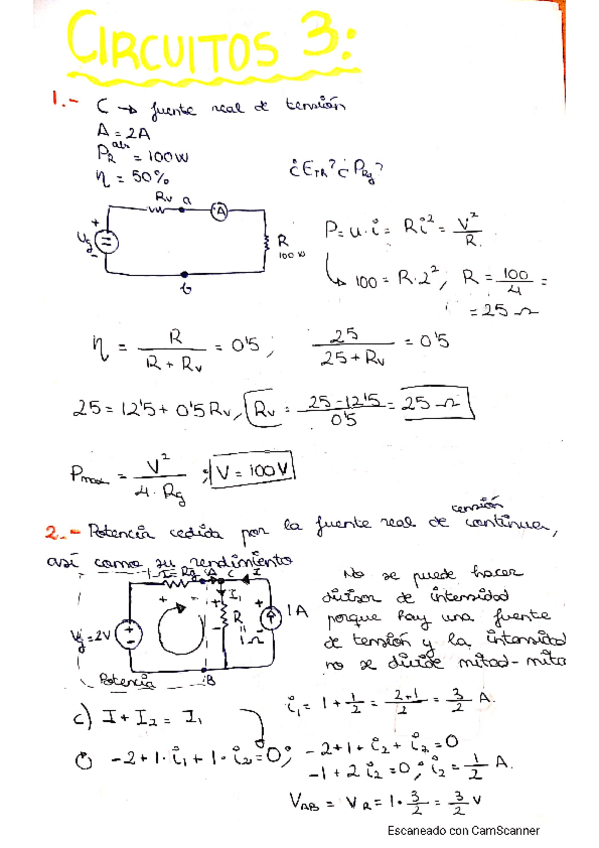 CIRCUITOS 3:
1.- C → fuente real de tensión
A = 2A
P_R^abs = 100W
η = 50%
¿E_TH? ¿P_Rg?
Rv a
A
+
Vg
-
R
100 W
b
P = u · i = R i² = V²/R
↳ 100 = R · 2², R = 100/4 =
= 25 Ω
η = R/(R + Rv) = 0'5 ; 25/(25 + Rv) = 0'5
25 = 12'5 + 0'5 Rv, Rv = (25 - 12'5)/0'5 = 25 Ω
Pmax = V²/(4 · Rg) ; V = 100V
2.- Potencia cedida por la fuente real de tensión continua,
así como su rendimiento
Rg A C I
I₁
Vg = 2V
R
1 Ω
1 A
Potencia
B
No se puede hacer
divisor de intensidad
porque hay una fuente
de tensión y la intensidad
no se divide mitad-mita
c) I + I₂ = I₁
i₁ = 1 + 1/2 = (2+1)/2 = 3/2 A.
-2 + 1 · i₁ + 1 · i₂ = 0; -2 + 1 + i₂ + i₂ = 0
-1 + 2 i₂ = 0; i₂ = 1/2 A.
V_AB = V_R = 1 · 3/2 = 3/2 V
Escaneado con CamScanner